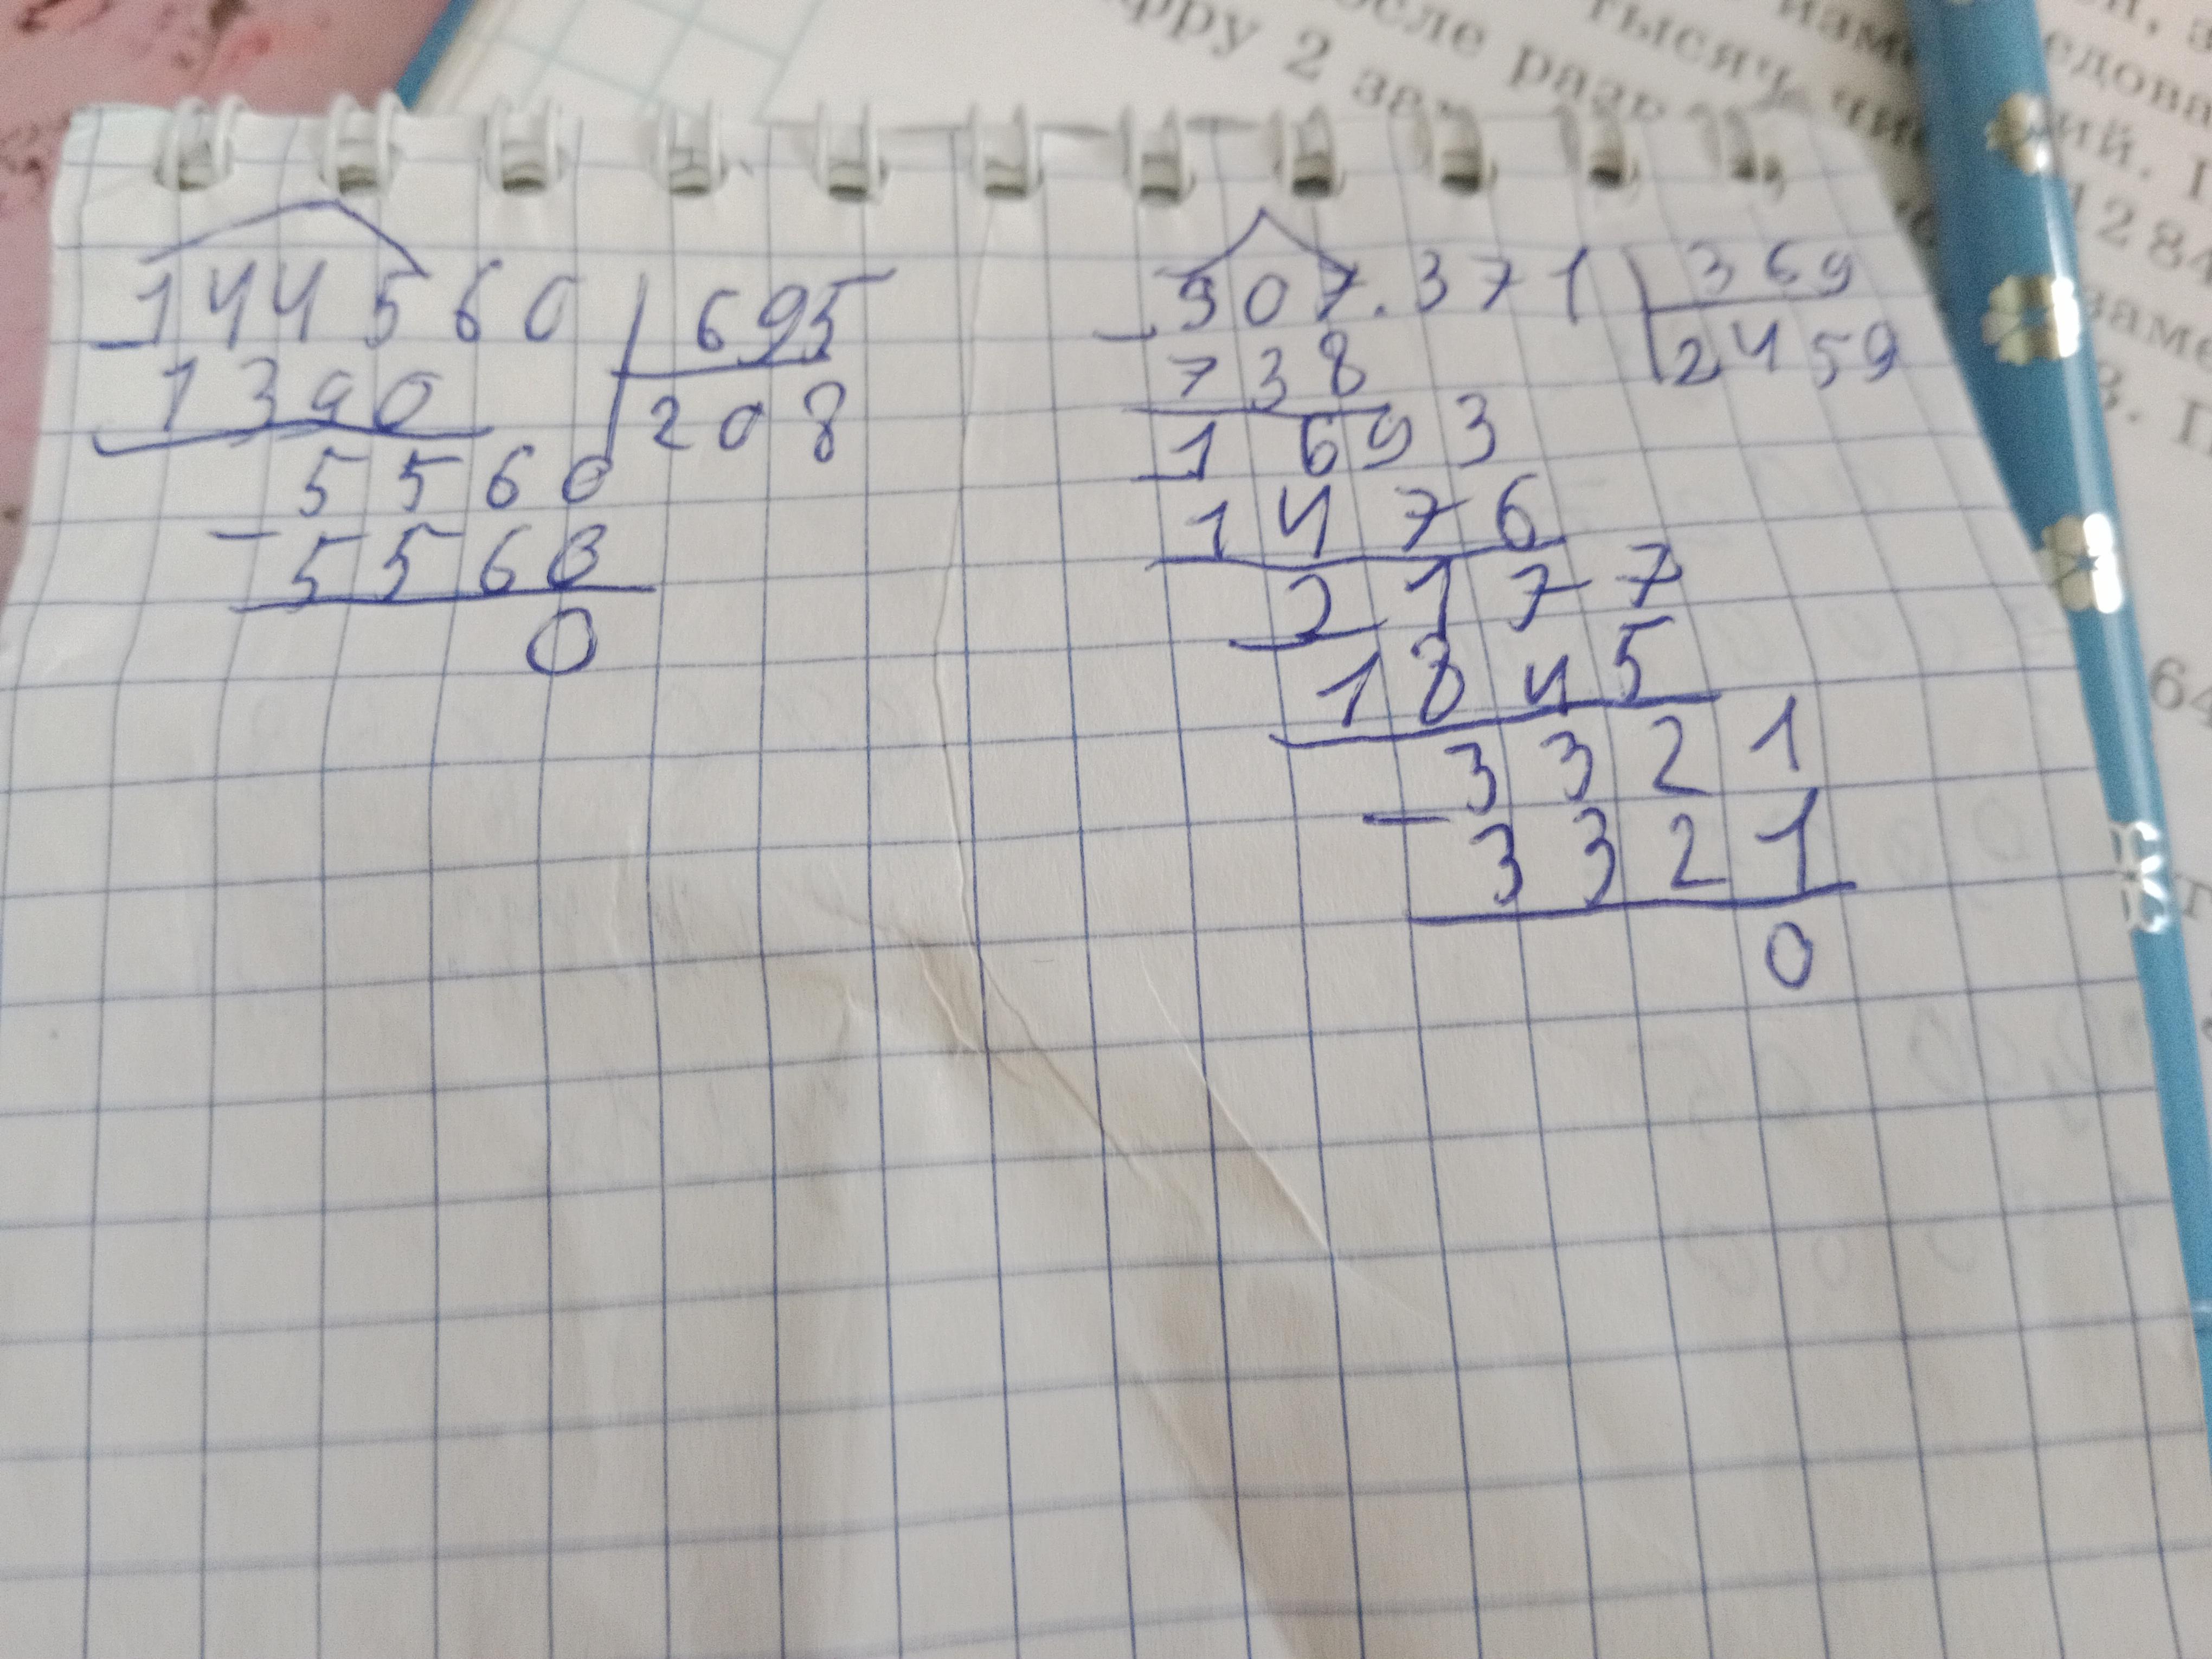 144560 695
1390 208
5560
5560
0
907.371 369
738 2459
1693
1476
2177
1845
3321
3321
0
фру 2
после
тысяч
1284
64